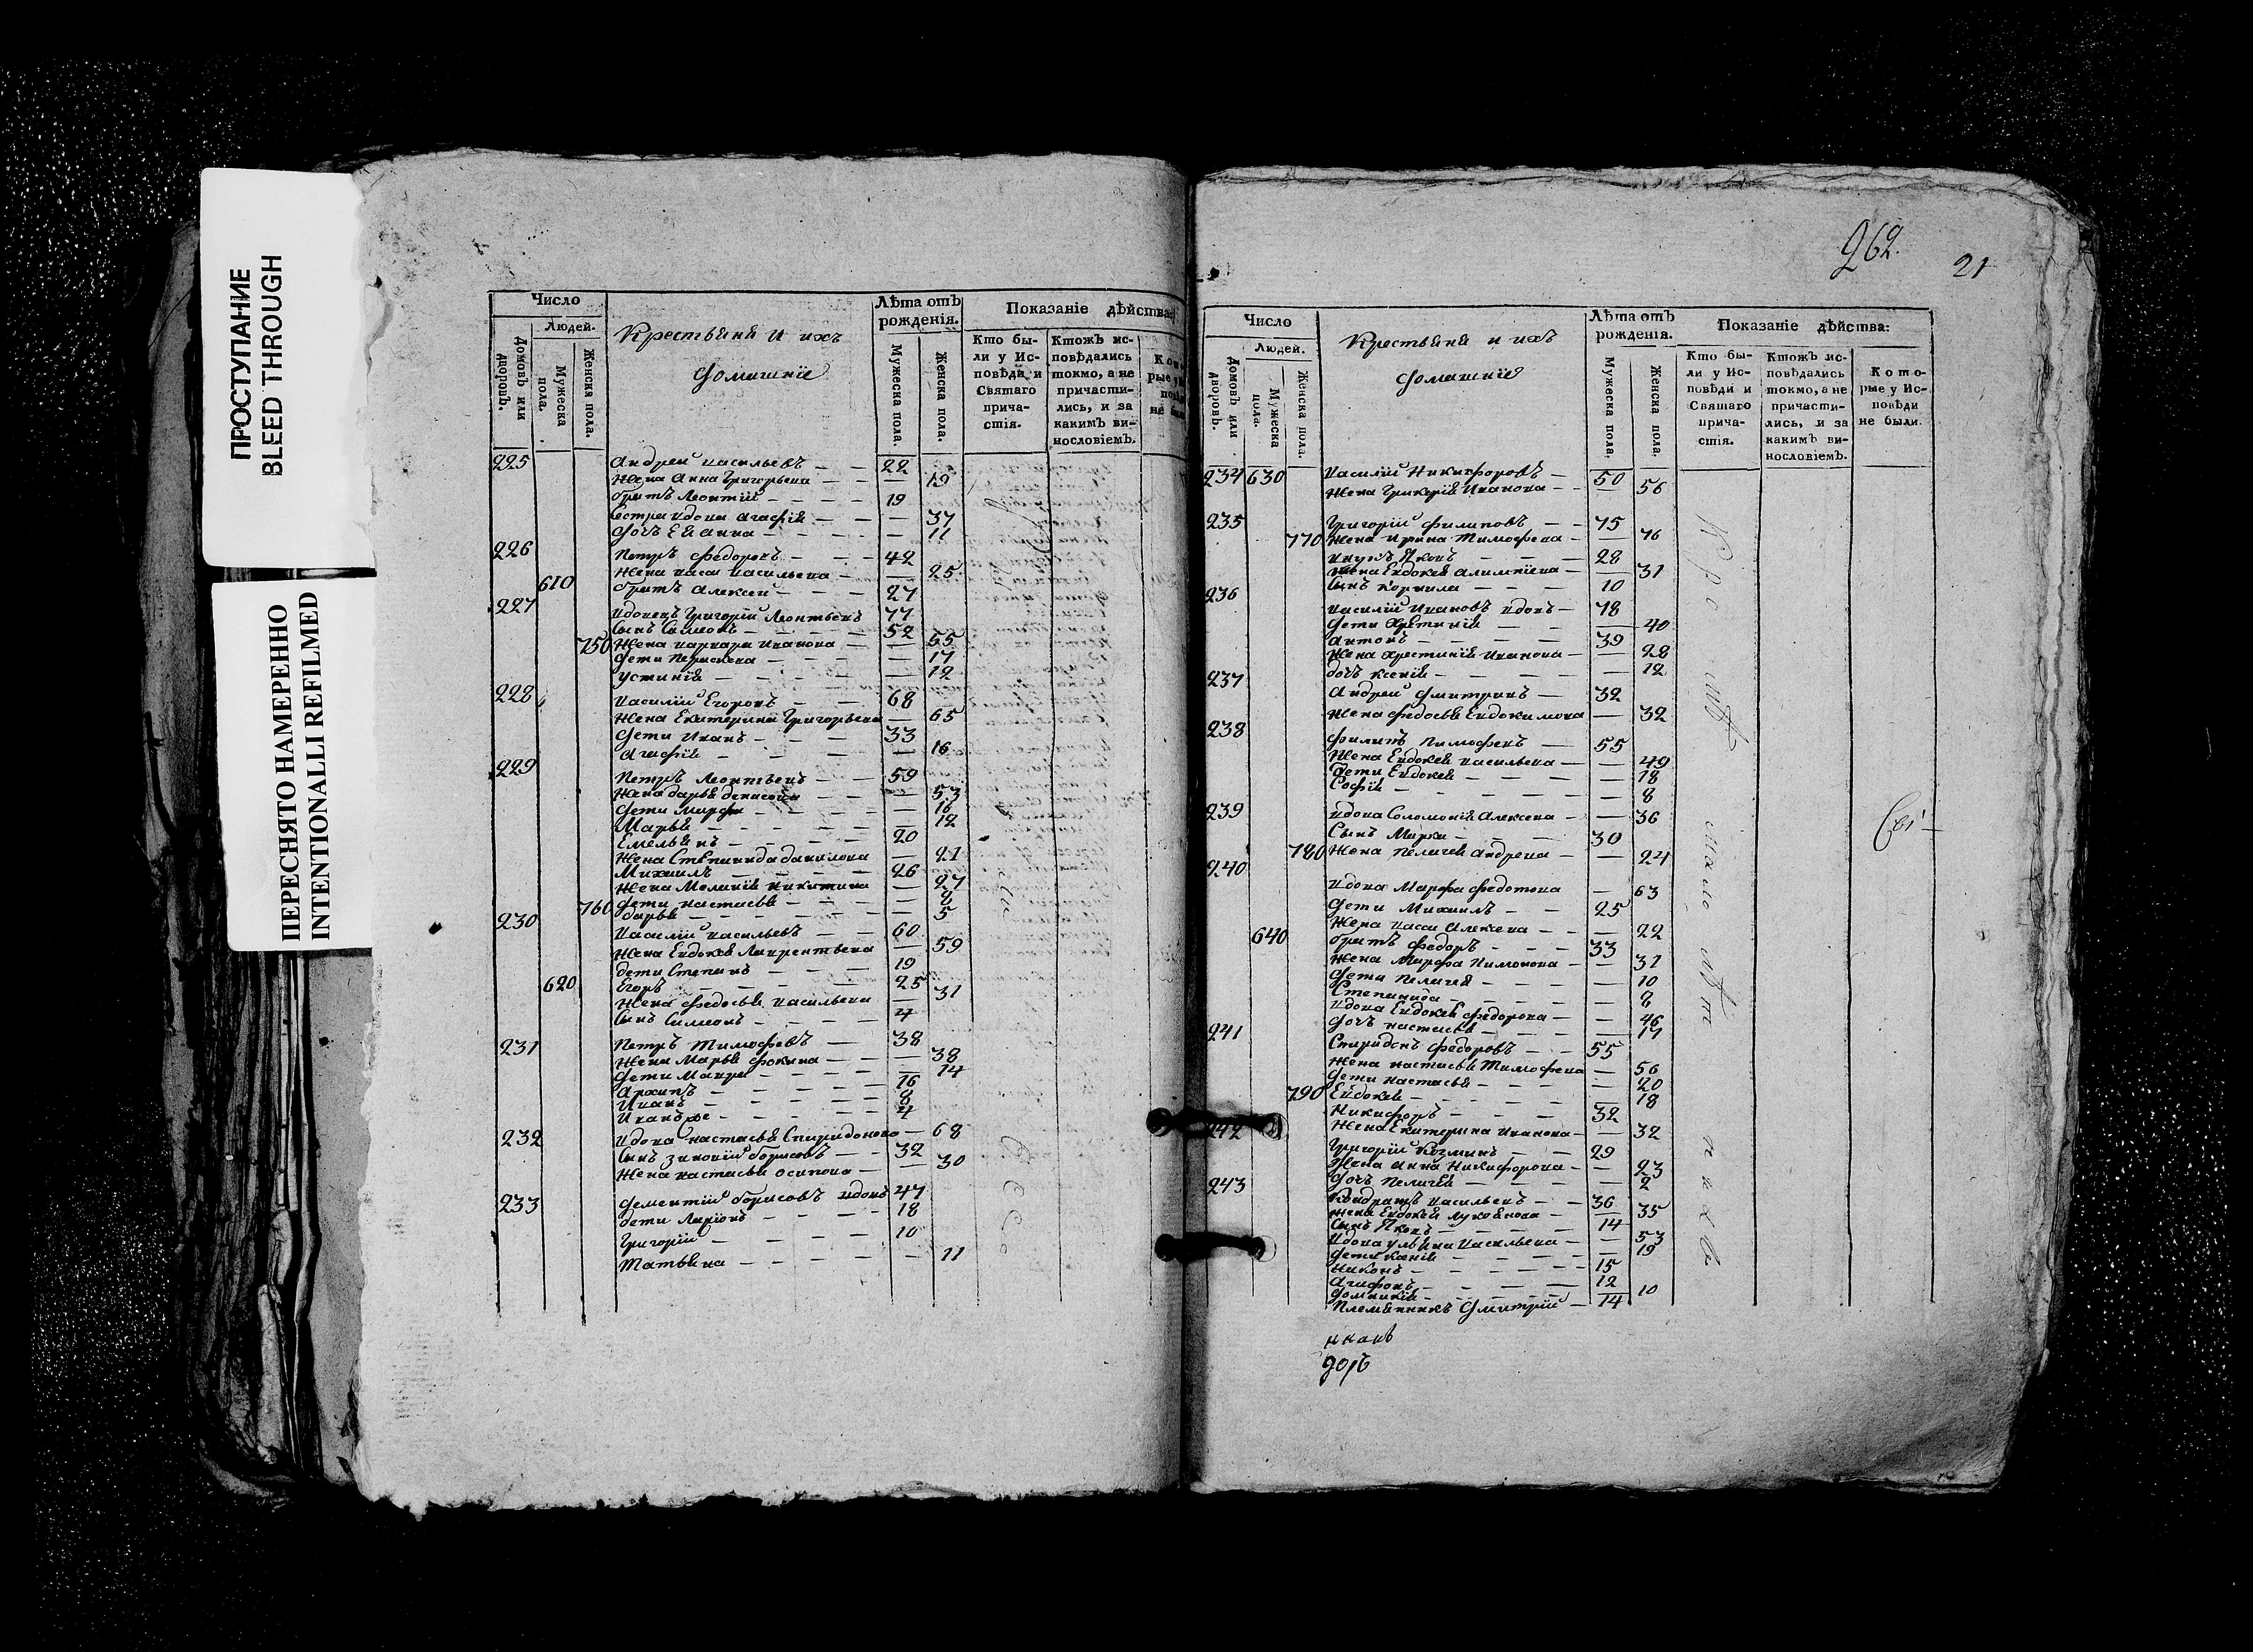 ПРОСТУПАНИЕ
BLEED THROUGH
ПЕРЕСНЯТО НАМЕРЕННО
INTENTIONALLI REFILMED
Число
Людей.
Домовъ или дворовъ.
Мужеска пола.
Женска пола.
Крестьяня и ихъ
Домашніе
Лѣта отъ рожденія.
Мужеска пола.
Женска пола.
Показаніе дѣйства:
Кто были у Исповѣди и Святаго причастія.
Ктожъ исповѣдались токмо, а не причастились, и за какимъ винословіемъ.
225 Андрей Васильевъ — — 22
Жена Анна Григорьева — — — 19
братъ Леонтій — — — 19
Сестра вдова Агафія — — — 37
Дочь Анна — — — 11
226 Петръ Федоровъ — — — 42
Жена Васильева — — 25
610 братъ Алексей — — — 27
227 вдовецъ Григорій Леонтьевъ 77
Сынъ Симеонъ — — — 52
750 Жена Варвара Иванова — — 55
Дети Парасковья — — — 17
Устинія — — — 12
228 Василій Егоровъ — — 68
Жена Екатерина Григорьева — 65
Дети Иванъ — — — 33
Агафія — — — 16
229 Петръ Леонтьевъ — — 59
Жена дарья денисова — — 53
Дети Марфа — — — 16
Марья — — — 12
Емельянъ — — — 20
Жена Степанида данилова — 21
Михаилъ — — — 26
Жена Меланія Никитина — 27
Дети настасья — — — 8
760 дарья — — — 5
230 Василій Васильевъ — — 60
Жена Евдокея Лаврентьева — 59
дети Степанъ — — — 19
620 Егоръ — — — 25
Жена Федосья Васильева — 31
Сынъ Симеонъ — — — 4
231 Петръ Тимофѣевъ — — 38
Жена Марья Фокина — — 38
Дети Мавра — — — 14
Архипъ — — — 16
Иванъ — — — 8
Иванъ же — — — 4
232 Вдова настасья Спиридонова — 68
Сынъ Зиновій борисовъ — — 32
Жена настасья Осипова — — 30
233 Дементій борисовъ вдовъ 47
дети Ларіонъ — — — 18
Григорій — — — 10
Татьяна — — — 11
262.
21
Число
Людей.
Домовъ или дворовъ.
Мужеска пола.
Женска пола.
Крестьяня и ихъ
Домашніе
Лѣта отъ рожденія.
Мужеска пола.
Женска пола.
Показаніе дѣйства:
Кто были у Исповѣди и Святаго причастія.
Ктожъ исповѣдались токмо, а не причастились, и за какимъ винословіемъ.
Которые у Исповѣди не были.
234 630 Василій Никифоровъ — 50
Жена Иванова — — 56
235 Григорій Филиповъ — — 75
770 Жена Ирина Тимофеева — — 76
внукъ Яковъ — — — 28
Жена Евдокея — — 31
Сынъ Корнила — — — 10
236 Василій Ивановъ вдовъ — 78
Дети — — — 40
Антонъ — — — 39
Жена Христинія Иванова — — 28
дочь Ксенія — — — 12
237 Андрей Дмитріевъ — 32
Жена Федосья Евдокимова — 32
238 Филипъ — 55
Жена Евдокея Васильева — — 49
Дети Евдокея — — — 18
Софія — — — 8
239 вдова Соломонія Алексеева — — 36
Сынъ Марко — — — 30
780 Жена Пелагея Андреева — — 24
240 вдова Марфа Федотова — 63
Дети Михаилъ — — 25
Жена Алексеева — — 22
640 братъ Федоръ — — — 33
Жена Марфа — — 31
Дети Пелагея — — — 10
Степанида — — — 8
вдова Евдокея Федорова — — 46
Дочь настасья — — — 17
241 Спиридонъ Федоровъ — — 55
Жена настасья Тимофеева — 56
Дети настасья — — — 20
790 Евдокея — — — 18
Никифоръ — — — 32
Жена Екатерина Иванова — — 32
242 Григорій Козминъ — — 29
Жена Анна Никифорова — — 23
Дочь Пелагея — — — 2
243 Кондратъ Васильевъ — — 36
Жена Евдокея Лукоянова — — 35
Сынъ Яковъ — — — 14
Вдова Ульяна Васильева — — 53
Дети — — — 19
Никонъ — — — 15
Агафонъ — — — 12
Домникія — — — 10
Племянникъ Дмитрій — 14